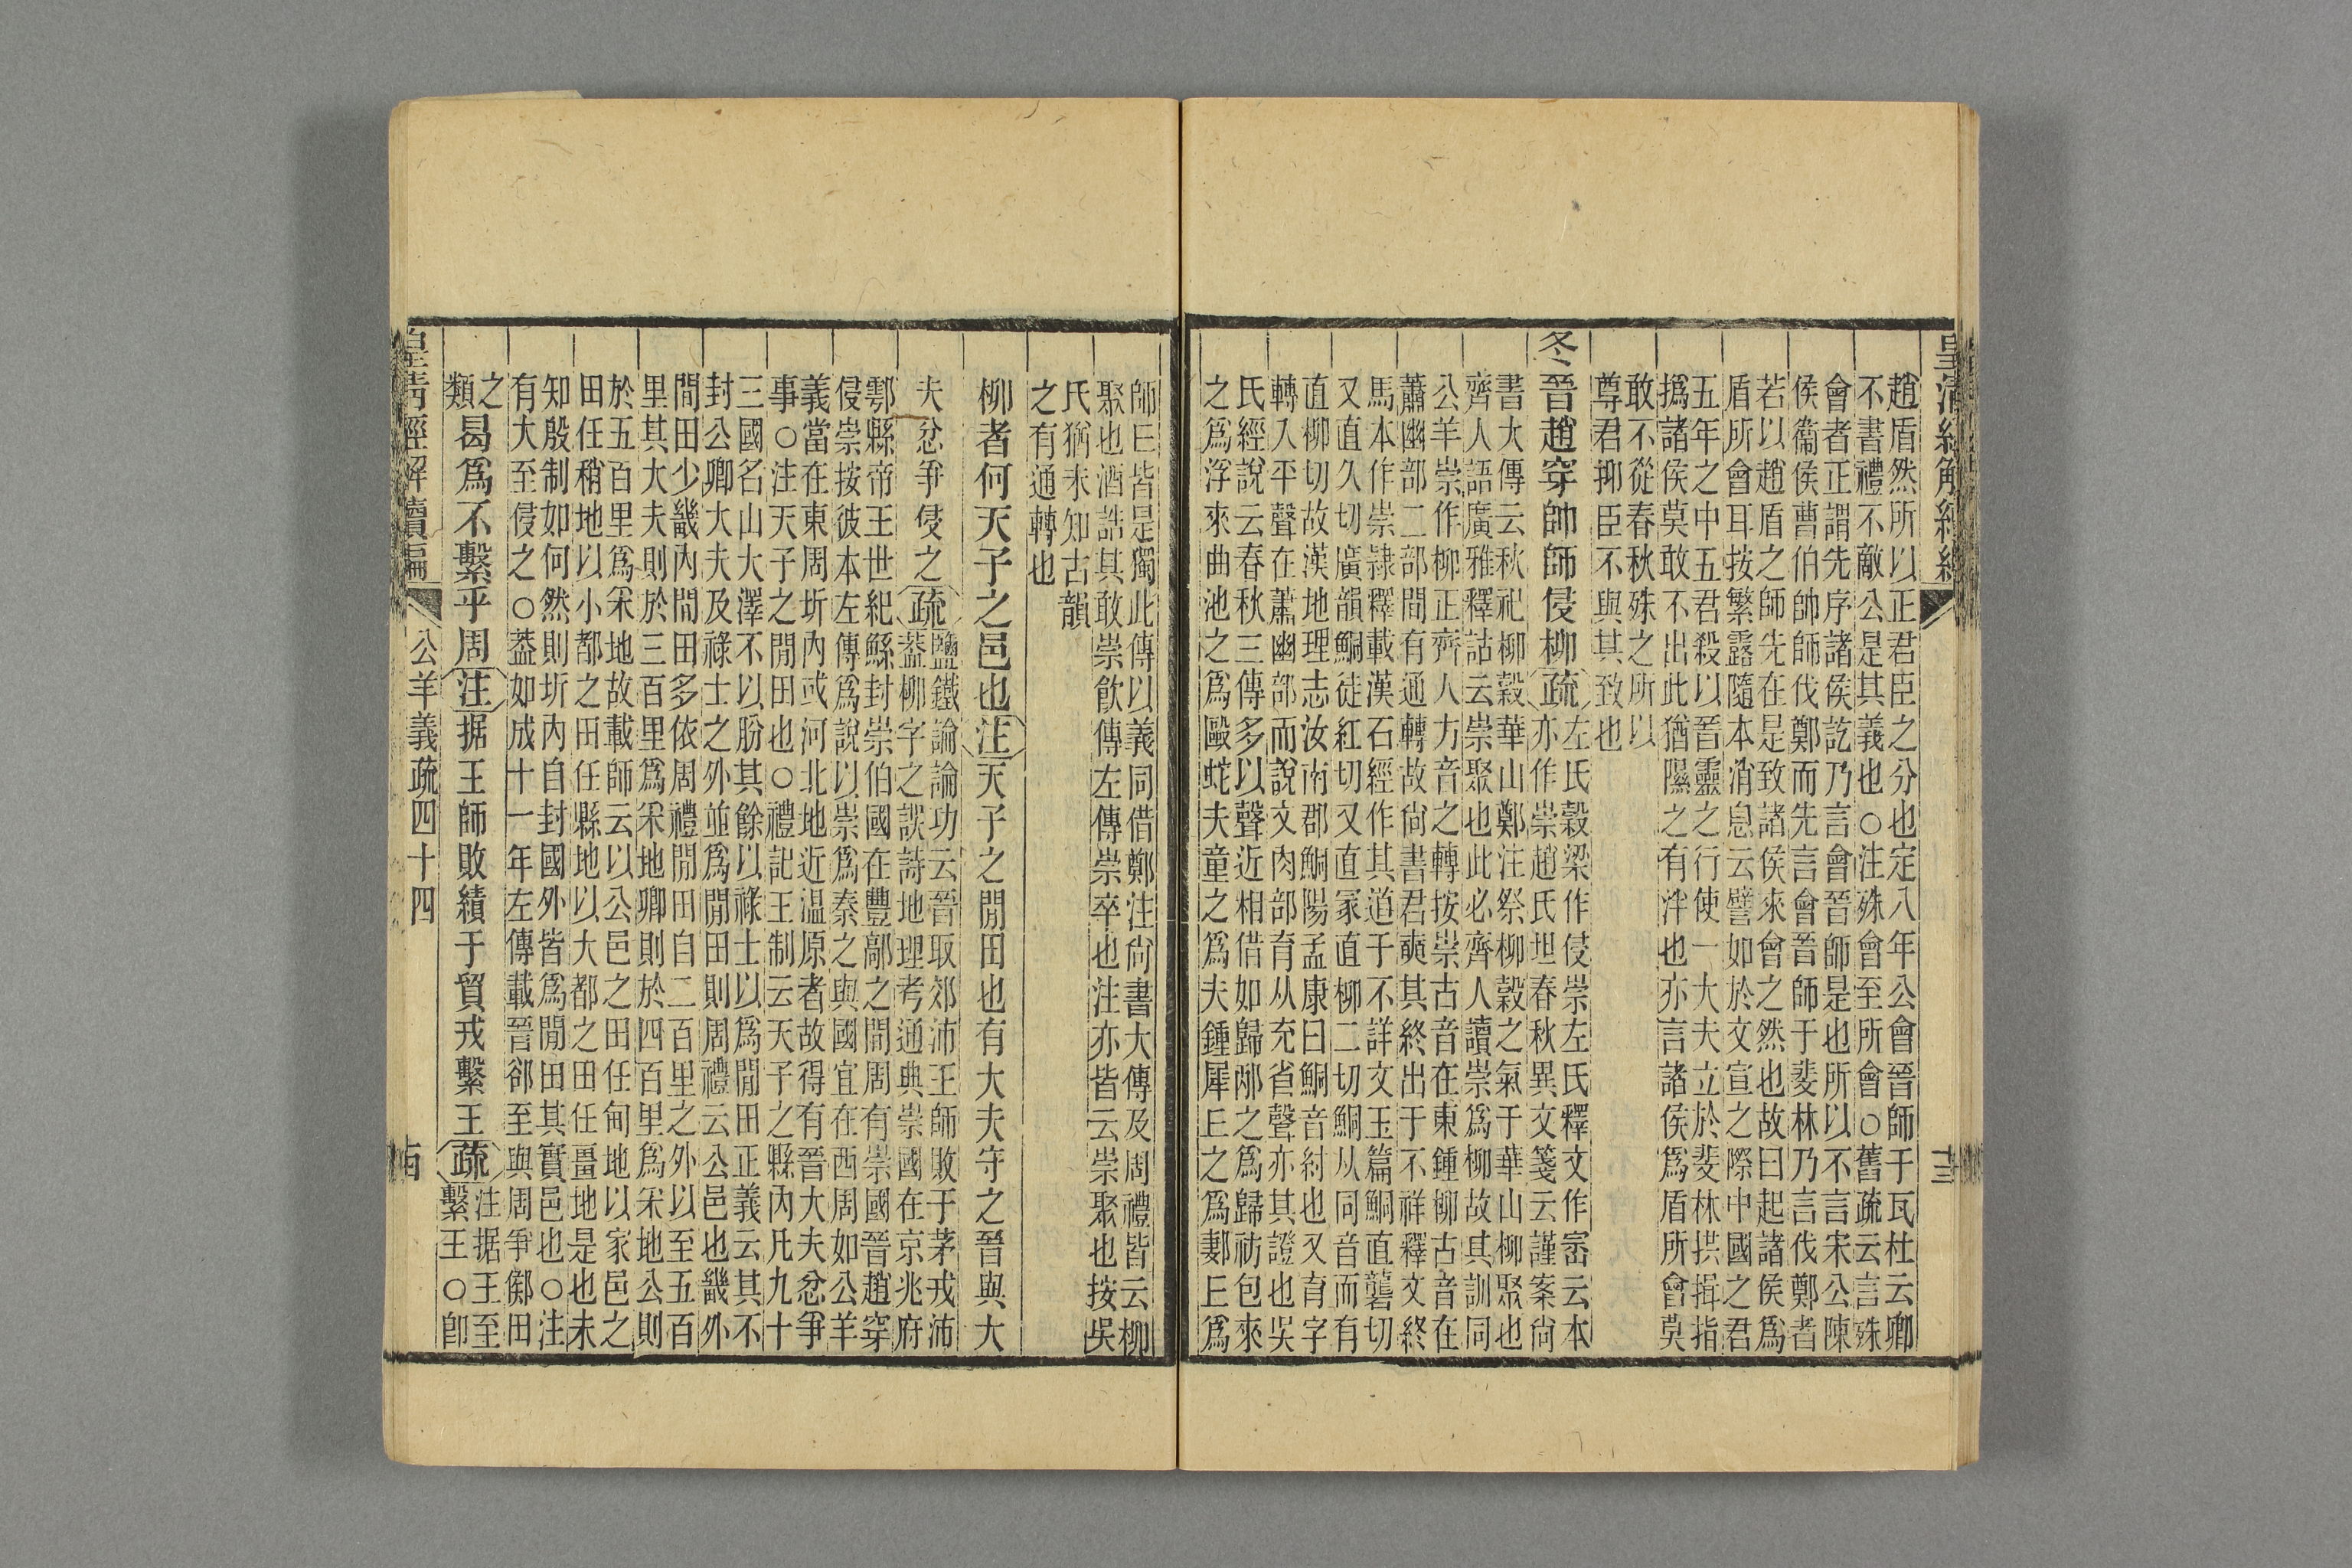 趙盾然所以正君臣之分也定八年公會晉師于瓦杜云卿
不書禮不敵公是其義也○注殊會至所會○舊疏云言殊
會者正謂先序諸侯訖乃言會晉師是也所以不言宋公陳
侯衞侯曹伯帥師伐鄭而先言會晉師于斐林乃言伐鄭者
若以趙盾之師先在是致諸侯來會之然也故曰起諸侯爲
盾所會耳按繁露隨本消息云譬如於文宣之際中國之君
五年之中五君殺以晉靈之行使一大夫立於斐林拱揖指
撝諸侯莫敢不出此猶隰之有泮也亦言諸侯爲盾所會莫
敢不從春秋殊之所以
尊君抑臣不與其致也
冬晉趙穿帥師侵柳疏
左氏穀梁作侵崇左氏釋文作崈云本
亦作崇趙氏坦春秋異文箋云謹案尙
書大傳云秋祀柳穀華山鄭注祭柳穀之氣于華山柳聚也
齊人語廣雅釋詁云崇聚也此必齊人讀崇爲柳故其訓同
公羊崇作柳正齊人方音之轉按崇古音在東鍾柳古音在
蕭幽部二部間有通轉故尙書君奭其終出于不祥釋文終
馬本作崇隷釋載漢石經作其道于不詳文玉篇鮦直龔切
又直久切廣韻鮦徒紅切又直冢直柳二切鮦从同音而有
直柳切故漢地理志汝南郡鮦陽孟康曰鮦音紂也又育字
轉入平聲在蕭幽部而說文肉部育从充省聲亦其證也吳
氏經說云春秋三傳多以聲近相借如歸邴之爲歸祊包來
之爲浮來曲池之爲毆蛇夫童之爲夫鍾犀𠀌之爲郪𠀌爲
師𠀌皆是獨此傳以義同借鄭注尙書大傳及周禮皆云柳
聚也酒誥其敢崇飮傳左傳崇卒也注亦皆云崇聚也按吳
氏猶未知古韻
之有通轉也
柳者何天子之邑也注天子之閒田也有大夫守之晉與大
夫忿爭侵之疏
鹽鐵論論功云晉取郊沛王師敗于茅戎沛
蓋柳字之誤詩地理考通典崇國在京兆府
鄠縣帝王世紀鯀封崇伯國在豐鄗之間周有崇國晉趙穿
侵崇按彼本左傳爲說以崇爲秦之與國宜在西周如公羊
義當在東周圻內或河北地近温原者故得有晉大夫忿爭
事○注天子之閒田也○禮記王制云天子之縣內凡九十
三國名山大澤不以朌其餘以祿士以爲閒田正義云其不
封公卿大夫及祿士之外並爲閒田則周禮云公邑也畿外
間田少畿內閒田多依周禮閒田自二百里之外以至五百
里其大夫則於三百里爲采地卿則於四百里爲采地公則
於五百里爲采地故載師云以公邑之田任甸地以家邑之
田任稍地以小都之田任縣地以大都之田任畺地是也未
知殷制如何然則圻內自封國外皆爲閒田其實邑也○注
有大至侵之○蓋如成十一年左傳載晉郤至與周爭鄇田
之
類曷爲不繫乎周注据王師敗績于貿戎繫王疏
注据王至
繫王○卽
皇清經解續編
公羊義疏四十四